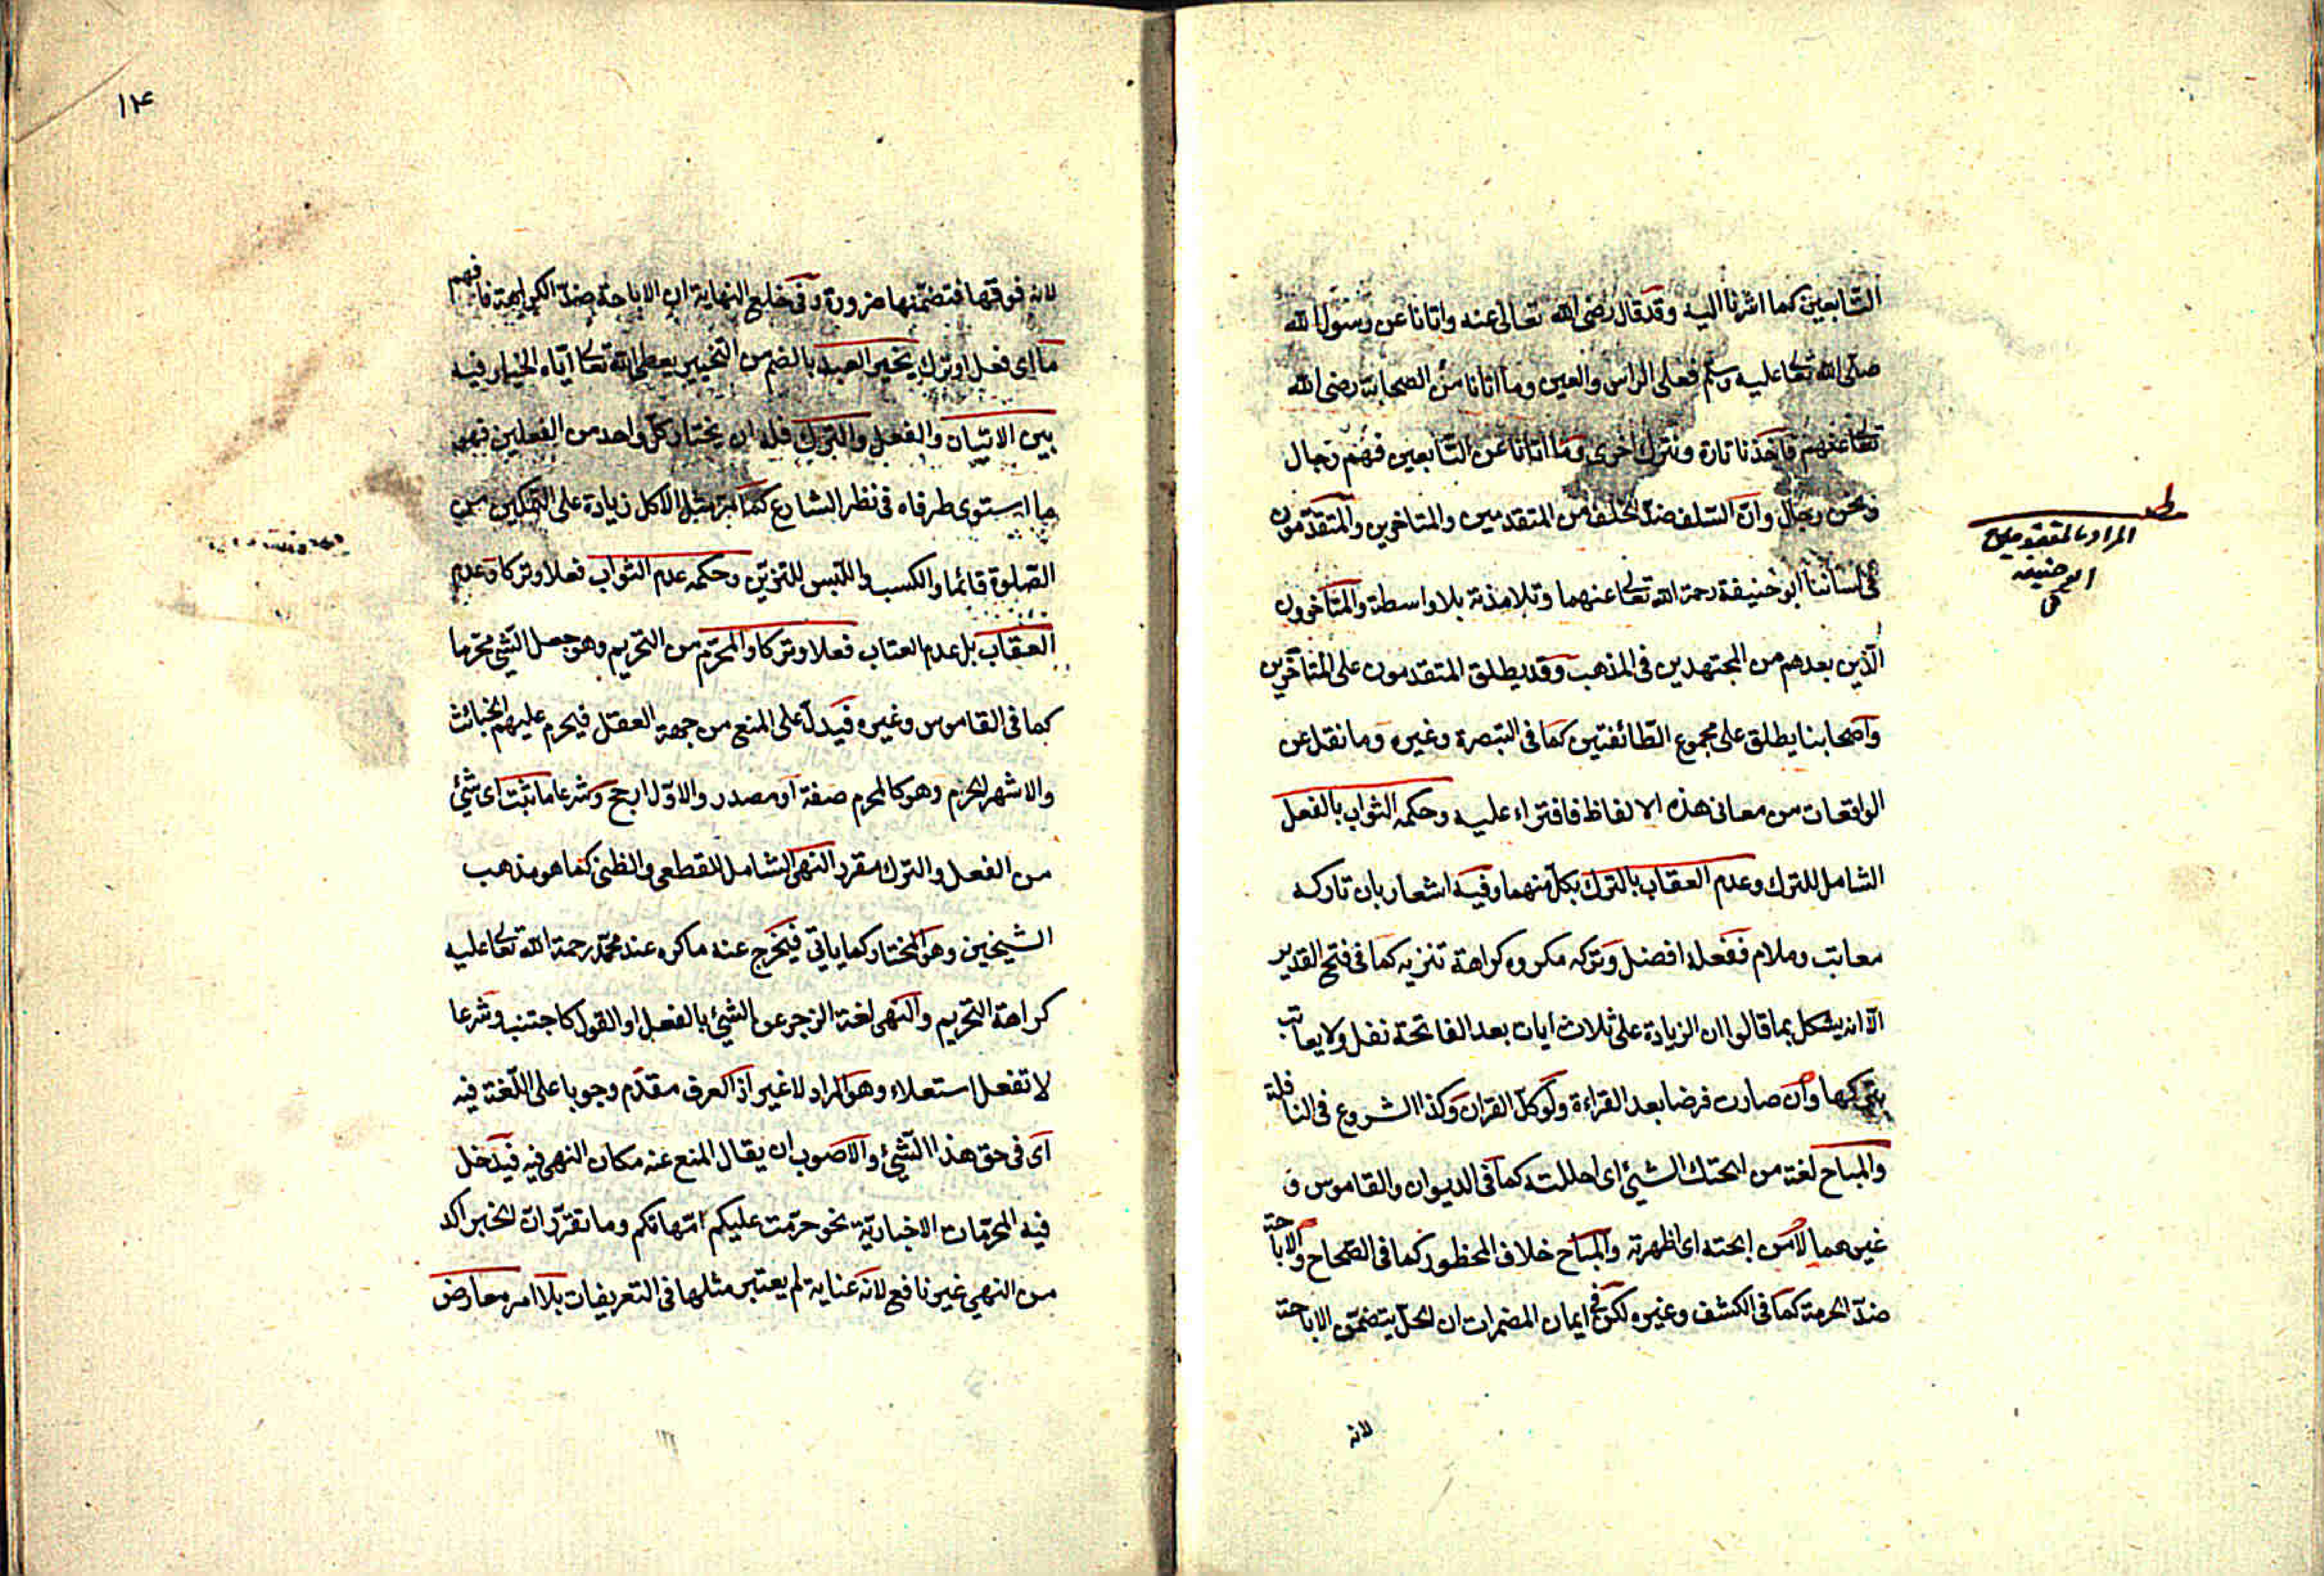 التابعين كما اشرنا اليه وقد قال رضى الله تعالى عنه واتانا عن رسول الله
صلى الله تعا عليه وسلم فعلى الراس والعين وما اتانا من الصحابة رضى الله
تعا عنهم فاخذنا تارة ونترك اخرى وما اتانا عن التابعين فهم رجال
ونحن رجال وان السلف ضد الخلف من المتقدمين والمتاخرين والمتقدمون
فى لساننا ابو حنيفة رحمة الله تعا عنهما وتلامذته بلا واسطة والمتاخرون
الذين بعدهم من المجتهدين فى المذهب وقد يطلق المتقدمون على المتاخرين
واصحابنا يطلق على مجموع الطائفتين كما فى التبصرة وغيره وما نقل عن
الواقعات من معانى هذه الالفاظ فافتراء عليه وحكمه الثواب بالفعل
الشامل للترك وعدم العقاب بالترك بكل منهما وفيه اشعار بان تاركه
معاتب وملام ففعله افضل وتركه مكروه كراهة تنزيه كما فى فتح القدير
الا انه يشكل بما قالوا ان الزيادة على ثلاث ايات بعد الفاتحة نفل ولا يعاتب
بتركها وان صارت فرضا بعد القراءة ولو كل القران وكذا الشروع فى النافلة
والمباح لغة من ابحتك الشئ اى احللته كما فى الديوان والقاموس و
غيرهما لا من ابحته اى اظهرته والمباح خلاف المحظور كما فى الصحاح والاباحة
ضد الحرمة كما فى الكشف وغيره لكن فى ايمان المضمرات ان الحل يتضمن الاباحة
لانه
المراد
حنيفه
١٤
لانه فوقها فتضمنها ضرورة وفى خلع النهاية ان الاباحة ضد الكراهة فافهم
ما اى فعل او ترك يخير العبد بالضم من التخيير يعطى الله تعا اياه الخيار فيه
بين الاتيان والفعل والترك فله ان يختار كل واحد من الفعلين فهو
ما استوى طرفاه فى نظر الشارع كما مر مثل الاكل زيادة على التمكين من
الصلوة قائما والكسب واللبس للتزين وحكمه عدم الثواب فعلا وتركا وعدم
العقاب بل عدم العتاب فعلا وتركا والمحرم من التحريم وهو جعل الشئ محرما
كما فى القاموس وغيره فيدل على المنع من جهة العقل فيحرم عليهم الخبائث
والاشهر الحرم وهو كالمحرم صفة او مصدر والاول ارجح وشرعا ما ثبت اى شئ
من الفعل والترك مقرر النهى الشامل للقطعى والظنى كما هو مذهب
الشيخين وهو المختار كما ياتى فيخرج عنه ما كره عند محمد رحمة الله تعا عليه
كراهة التحريم والنهى لغة الزجر عن الشئ بالفعل او القول كاجتنب وشرعا
لا تفعل استعلاء وهو المراد لا غير اذ العرف مقدم وجوبا على اللغة فيه
اى فى حق هذا الشئ والاصوب ان يقال المنع عنه مكان النهى فيه فيدخل
فيه المحرمات الاخبارية نحو حرمت عليكم امهاتكم وما تقرر ان الخبر اكد
من النهى غير نافع لانه عناية لم يعتبر مثلها فى التعريفات بلا امر معارض